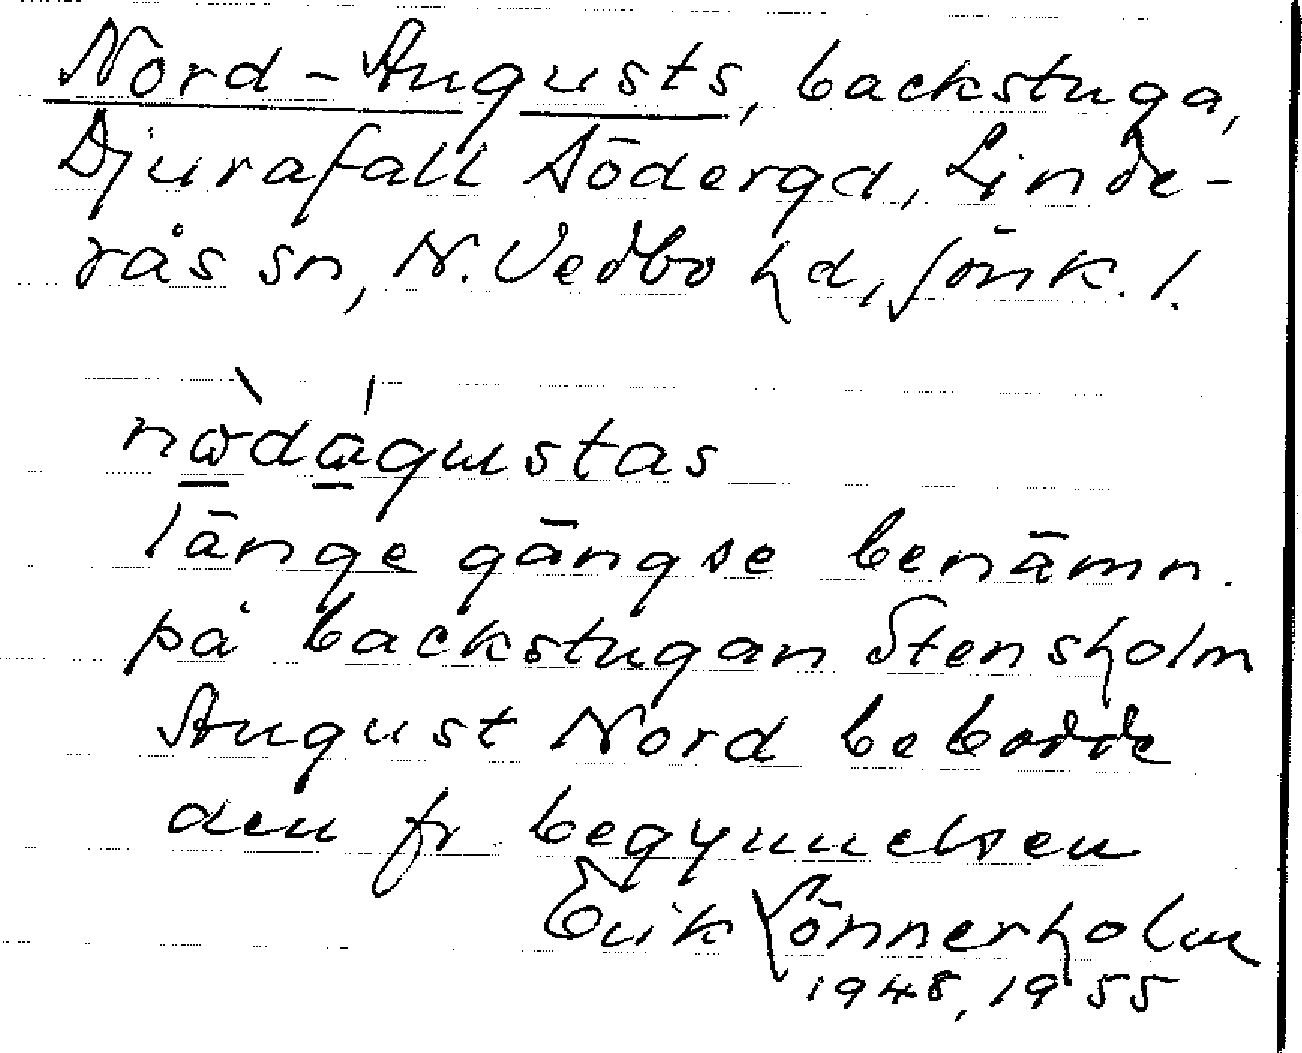 Nord-Augusts, backstuga,
Djurafall Södergd, Linde-
rås sn, N. Vedbo hd, Jönk. l.
länge gängse benämn.
på backstugan Stensholm
August Nord bebodde
den fr begynnelsen
Erik Lönnerholm
1948, 1955